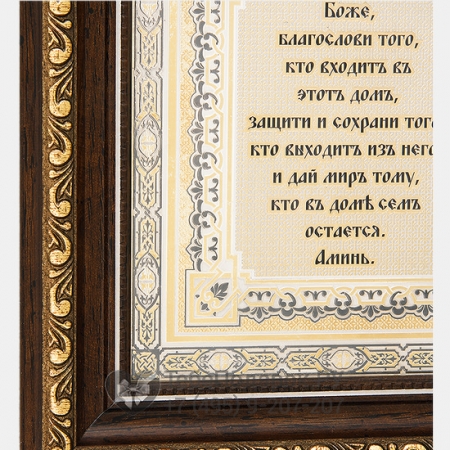 Боже,
благослови того,
кто входитъ въ
этотъ домъ,
защити и сохрани того
кто выходитъ изъ него
и дай миръ тому,
кто въ домѣ семъ
остается.
Аминь.